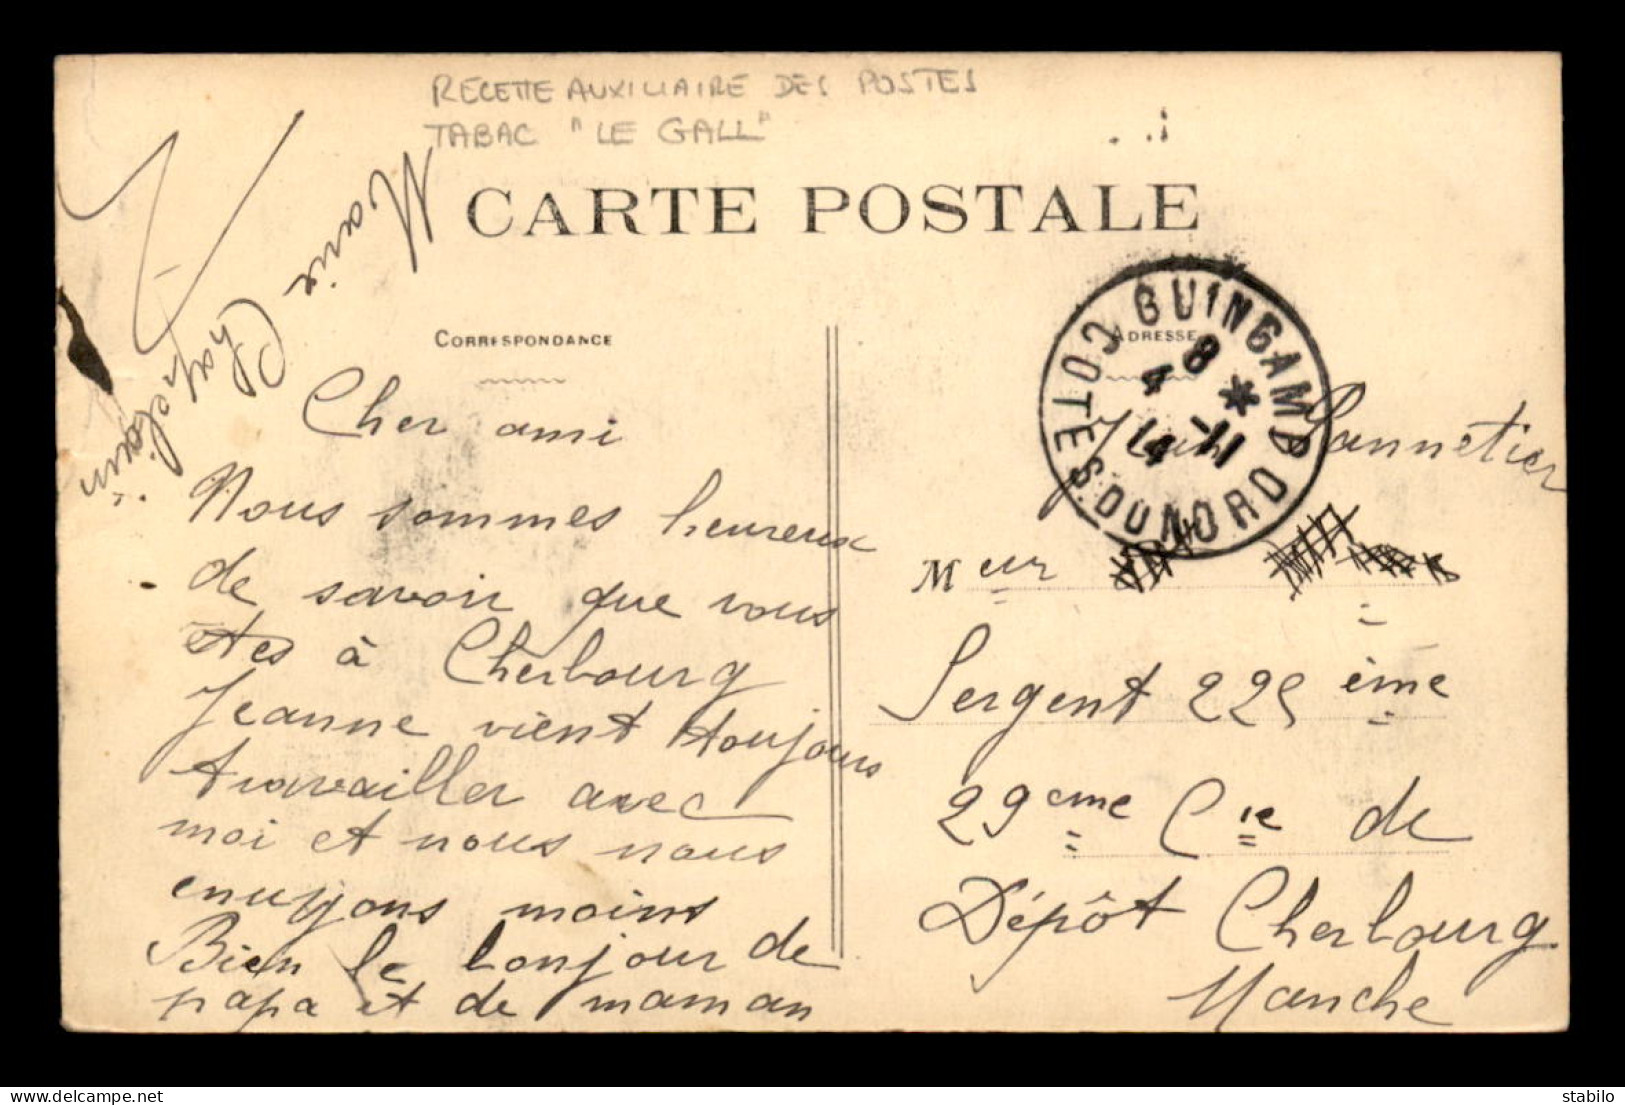 RECETTE AUXILIAIRE DES POSTES
TABAC "LE GALL"
CARTE POSTALE
CORRESPONDANCE
ADRESSE
GUINGAMP
COTES DU NORD
8 *
4 -11
14
Marie
Cher ami
Nous sommes heureux
de savoir que vous
êtes à Cherbourg
Jeanne vient toujours
travailler avec
moi et nous nous
enuyyons moins
Bien le bonjour de
papa et de maman
Jean Pannetier
Meur
Sergent 225 ème
29eme Cie de
Dépôt Cherbourg
Manche
stabilo
© delcampe.net